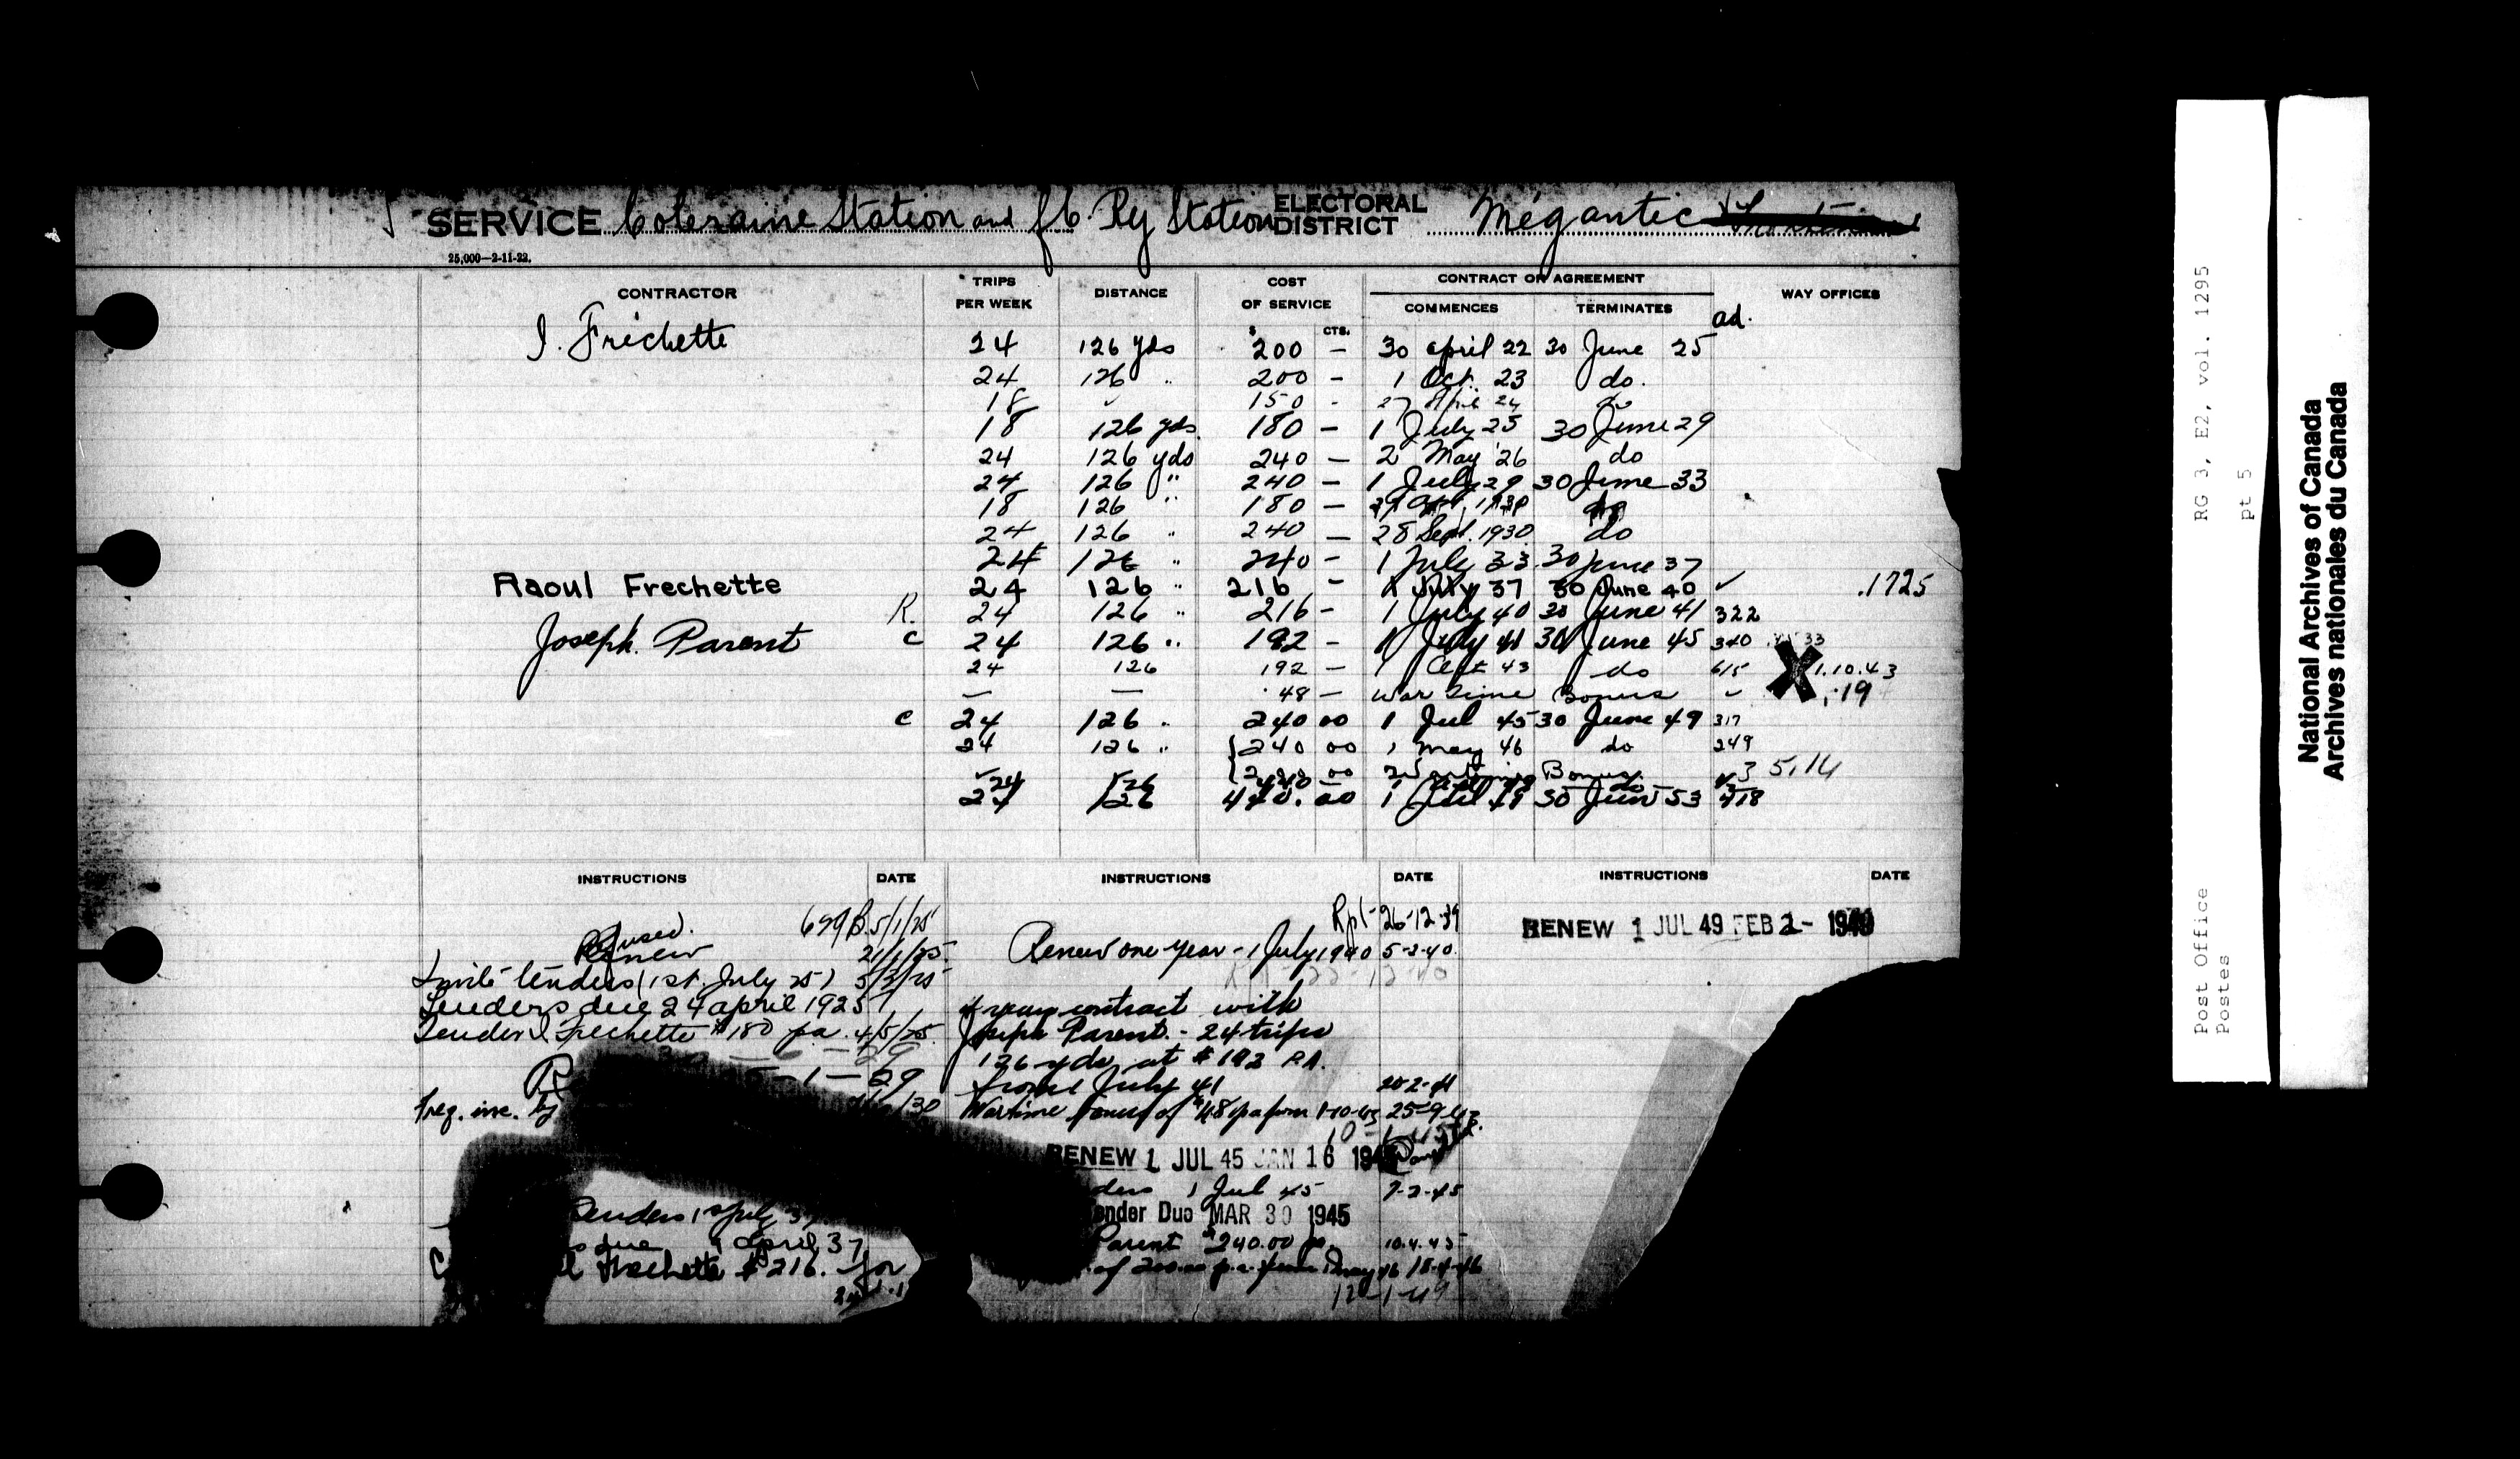 SERVICE Coleraine Station and Q.C. Ry Station ELECTORAL DISTRICT Mégantic
25,000—2-11-22.
CONTRACTOR TRIPS PER WEEK DISTANCE COST OF SERVICE CONTRACT OR AGREEMENT WAY OFFICES
COMMENCES TERMINATES
$ CTS. ad.
I. Frechette 24 126 yds 200 — 30 april 22 30 June 25
24 126 " 200 — 1 Oct. 23 do.
18 " 150 - 27 April 24 do
18 126 yds. 180 — 1 July 25 30 June 29
24 126 yds 240 — 2 May '26 do
24 126 " 240 — 1 July 29 30 June 33
18 126 " 180 — 27 Apr. 1930 do
24 126 " 240 — 28 Sept. 1930 do
24 126 " 240 - 1 July 33 30 June 37
Raoul Frechette 24 126 " 216 - 1 July 37 30 June 40 ✓ .1725
R. 24 126 " 216 - 1 July 40 30 June 41 322
Joseph. Parent C 24 126 " 192 - 1 July 41 30 June 45 340
24 126 192 — 1 Oct 43 do 615 X 1.10.43
— — 48 — War Time Bonus .19
C 24 126 " 240 00 1 Jul 45 30 June 49 317
24 126 " 240 00 1 May 46 do 249
200 00 Wartime Bonus 5,14
24 126 440.00 1 Jul 49 30 June 53 418
INSTRUCTIONS DATE INSTRUCTIONS DATE INSTRUCTIONS DATE
679 B. 5/1/25
Refused.
Renew 21/1/25
Invite tenders (1st. July 25) 5/3/25
Tenders due 24 april 1925
Tender I Frechette $180 pa. 4/5/25
-1-29
Freq. inc. by /30
Tenders 1st July 37
due 9 April 37
Frechette $216. for
Rpt- 26-12-39
Renew one year - 1 July 1940 5-2-40.
4 year contract with
Joseph Parent. - 24 trips
126 yds. at $192 P.A.
from 1 July 41 20-2-41
Wartime bonus of $48 pa from 1-10-43 25-9-43
10-1-45
RENEW 1 JUL 45 JAN 16 194
ders 1 Jul 45 7-2-45
ender Due MAR 30 1945
Parent $240.00 pa. 10.4.45
of 200.00 p.a. from 1 May 46 18-4-46
12-1-49
RENEW 1 JUL 49 FEB 2- 1949
Post Office RG 3, E2, vol. 1295
Postes pt 5
National Archives of Canada
Archives nationales du Canada